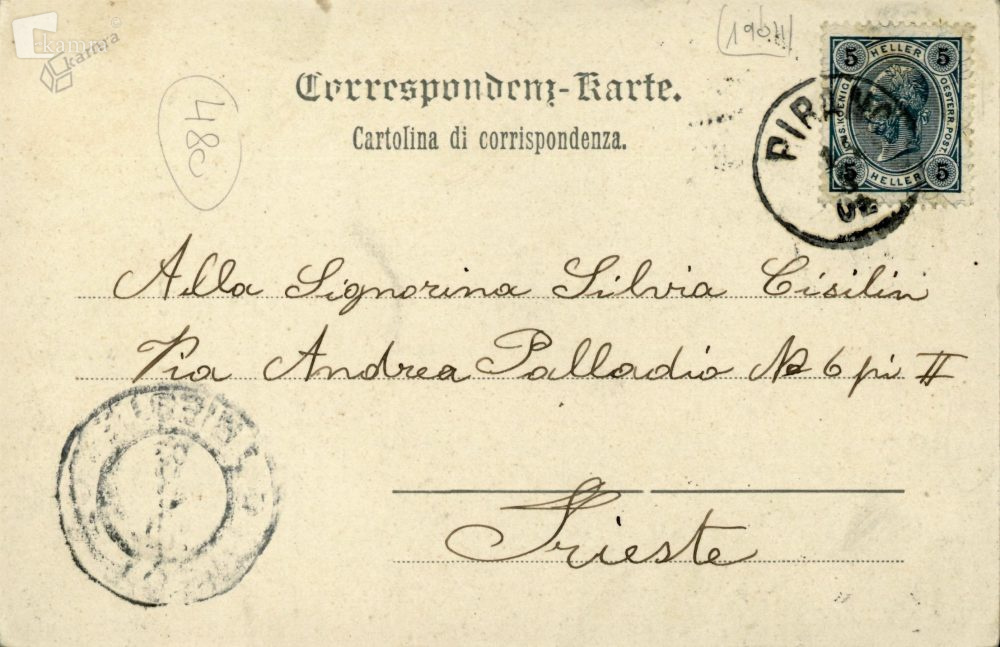 kamra
kamra
480
Correspondenz-Karte.
Cartolina di corrispondenza.
5 HELLER 5
OESTERR. POST.
5 HELLER 5
PIRANO
02
Alla Signorina Silvia Cisilin
Via Andrea Palladio No 6 pi II
Trieste